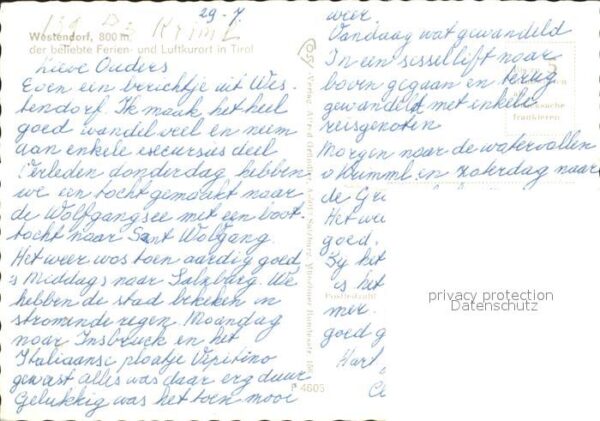 29-7
Westendorf, 800 m
der beliebte Ferien- und Luftkurort in Tirol
Lieve Ouders
Even een berichtje uit Wes-
tendorf. Ik maak het heel
goed wandel veel en neem
aan enkele excursies deel
Verleden donderdag hebben
we een tocht gemaakt naar
de Wolfgangsee met een boot-
tocht naar Sant Wolfgang.
Het weer was toen aardig goed,
s Middags naar Salzburg. We
hebben de stad bekeken in
stromende regen. Maandag
naar Innsbruck en het
Italiaanse plaatje Vipitino
geweest alles was daar erg duur
Gelukkig was het toen mooi
weer,
Vandaag wat gewandeld
In een sessellift naar
boven gegaan en terug
gewandeld met enkele
reisgenoten
Morgen naar de watervallen
v Krumml. en zaterdag naar
de Gr
Het we
goed.
By het
is het
meer.
goed g
Hart
frankieren
Postleitzahl
P 4605
privacy protection
Datenschutz